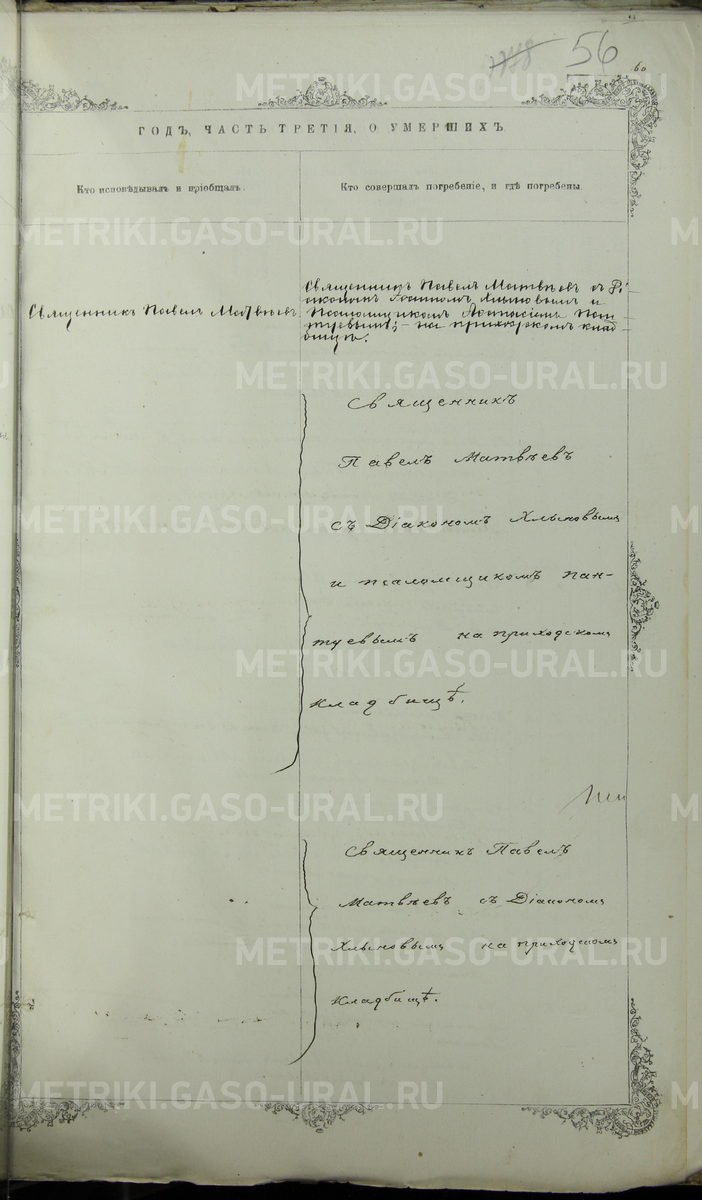 56
60
ГОДЪ, ЧАСТЬ ТРЕТІЯ, О УМЕРШИХЪ.
Кто исповѣдывалъ и пріобщалъ.
Кто совершалъ погребеніе, и гдѣ погребены.
Священникъ Павелъ Матвѣевъ
Священникъ Павелъ Матвѣевъ съ Ді
акономъ Іоанномъ Хлыновымъ и
Псаломщикомъ Аѳанасіемъ Пан
туевымъ; – на приходскомъ клад
бищѣ.
Священникъ
Павелъ Матвѣевъ
съ Діакономъ Хлыновымъ
и псаломщикомъ Пан-
туевымъ на приходскомъ
кладбищѣ.
Священникъ Павелъ
Матвѣевъ съ Діакономъ
Хлыновымъ на приходскомъ
кладбищѣ.
METRIKI.GASO-URAL.RU